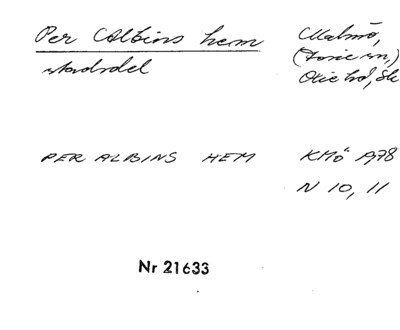 Per Albins hem Malmö,
stadsdel (Fosie sn,)
Oxie hd, Sk
PER ALBINS HEM KMÖ 1978
N 10, 11
Nr 21633